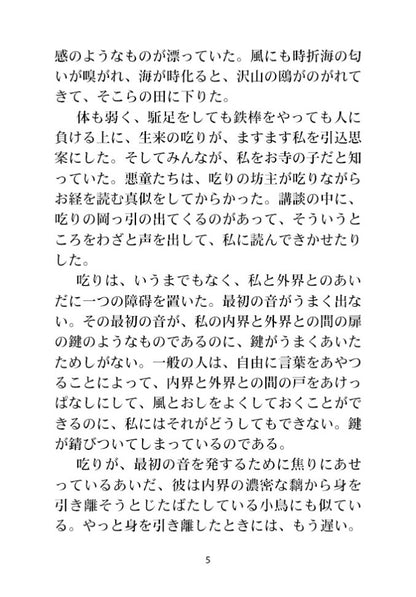 感のようなものが漂っていた。風にも時折海の匂
いが嗅がれ、海が時化ると、沢山の鴎がのがれて
きて、そこらの田に下りた。
体も弱く、駈足をしても鉄棒をやっても人に
負ける上に、生来の吃りが、ますます私を引込思
案にした。そしてみんなが、私をお寺の子だと知
っていた。悪童たちは、吃りの坊主が吃りながら
お経を読む真似をしてからかった。講談の中に、
吃りの岡っ引の出てくるのがあって、そういうと
ころをわざと声を出して、私に読んできかせたり
した。
吃りは、いうまでもなく、私と外界とのあい
だに一つの障碍を置いた。最初の音がうまく出な
い。その最初の音が、私の内界と外界との間の扉
の鍵のようなものであるのに、鍵がうまくあいた
ためしがない。一般の人は、自由に言葉をあやつ
ることによって、内界と外界との間の戸をあけっ
ぱなしにして、風とおしをよくしておくことがで
きるのに、私にはそれがどうしてもできない。鍵
が錆びついてしまっているのである。
吃りが、最初の音を発するために焦りにあせ
っているあいだ、彼は内界の濃密な黐から身を
引き離そうとじたばたしている小鳥にも似てい
る。やっと身を引き離したときには、もう遅い。
5